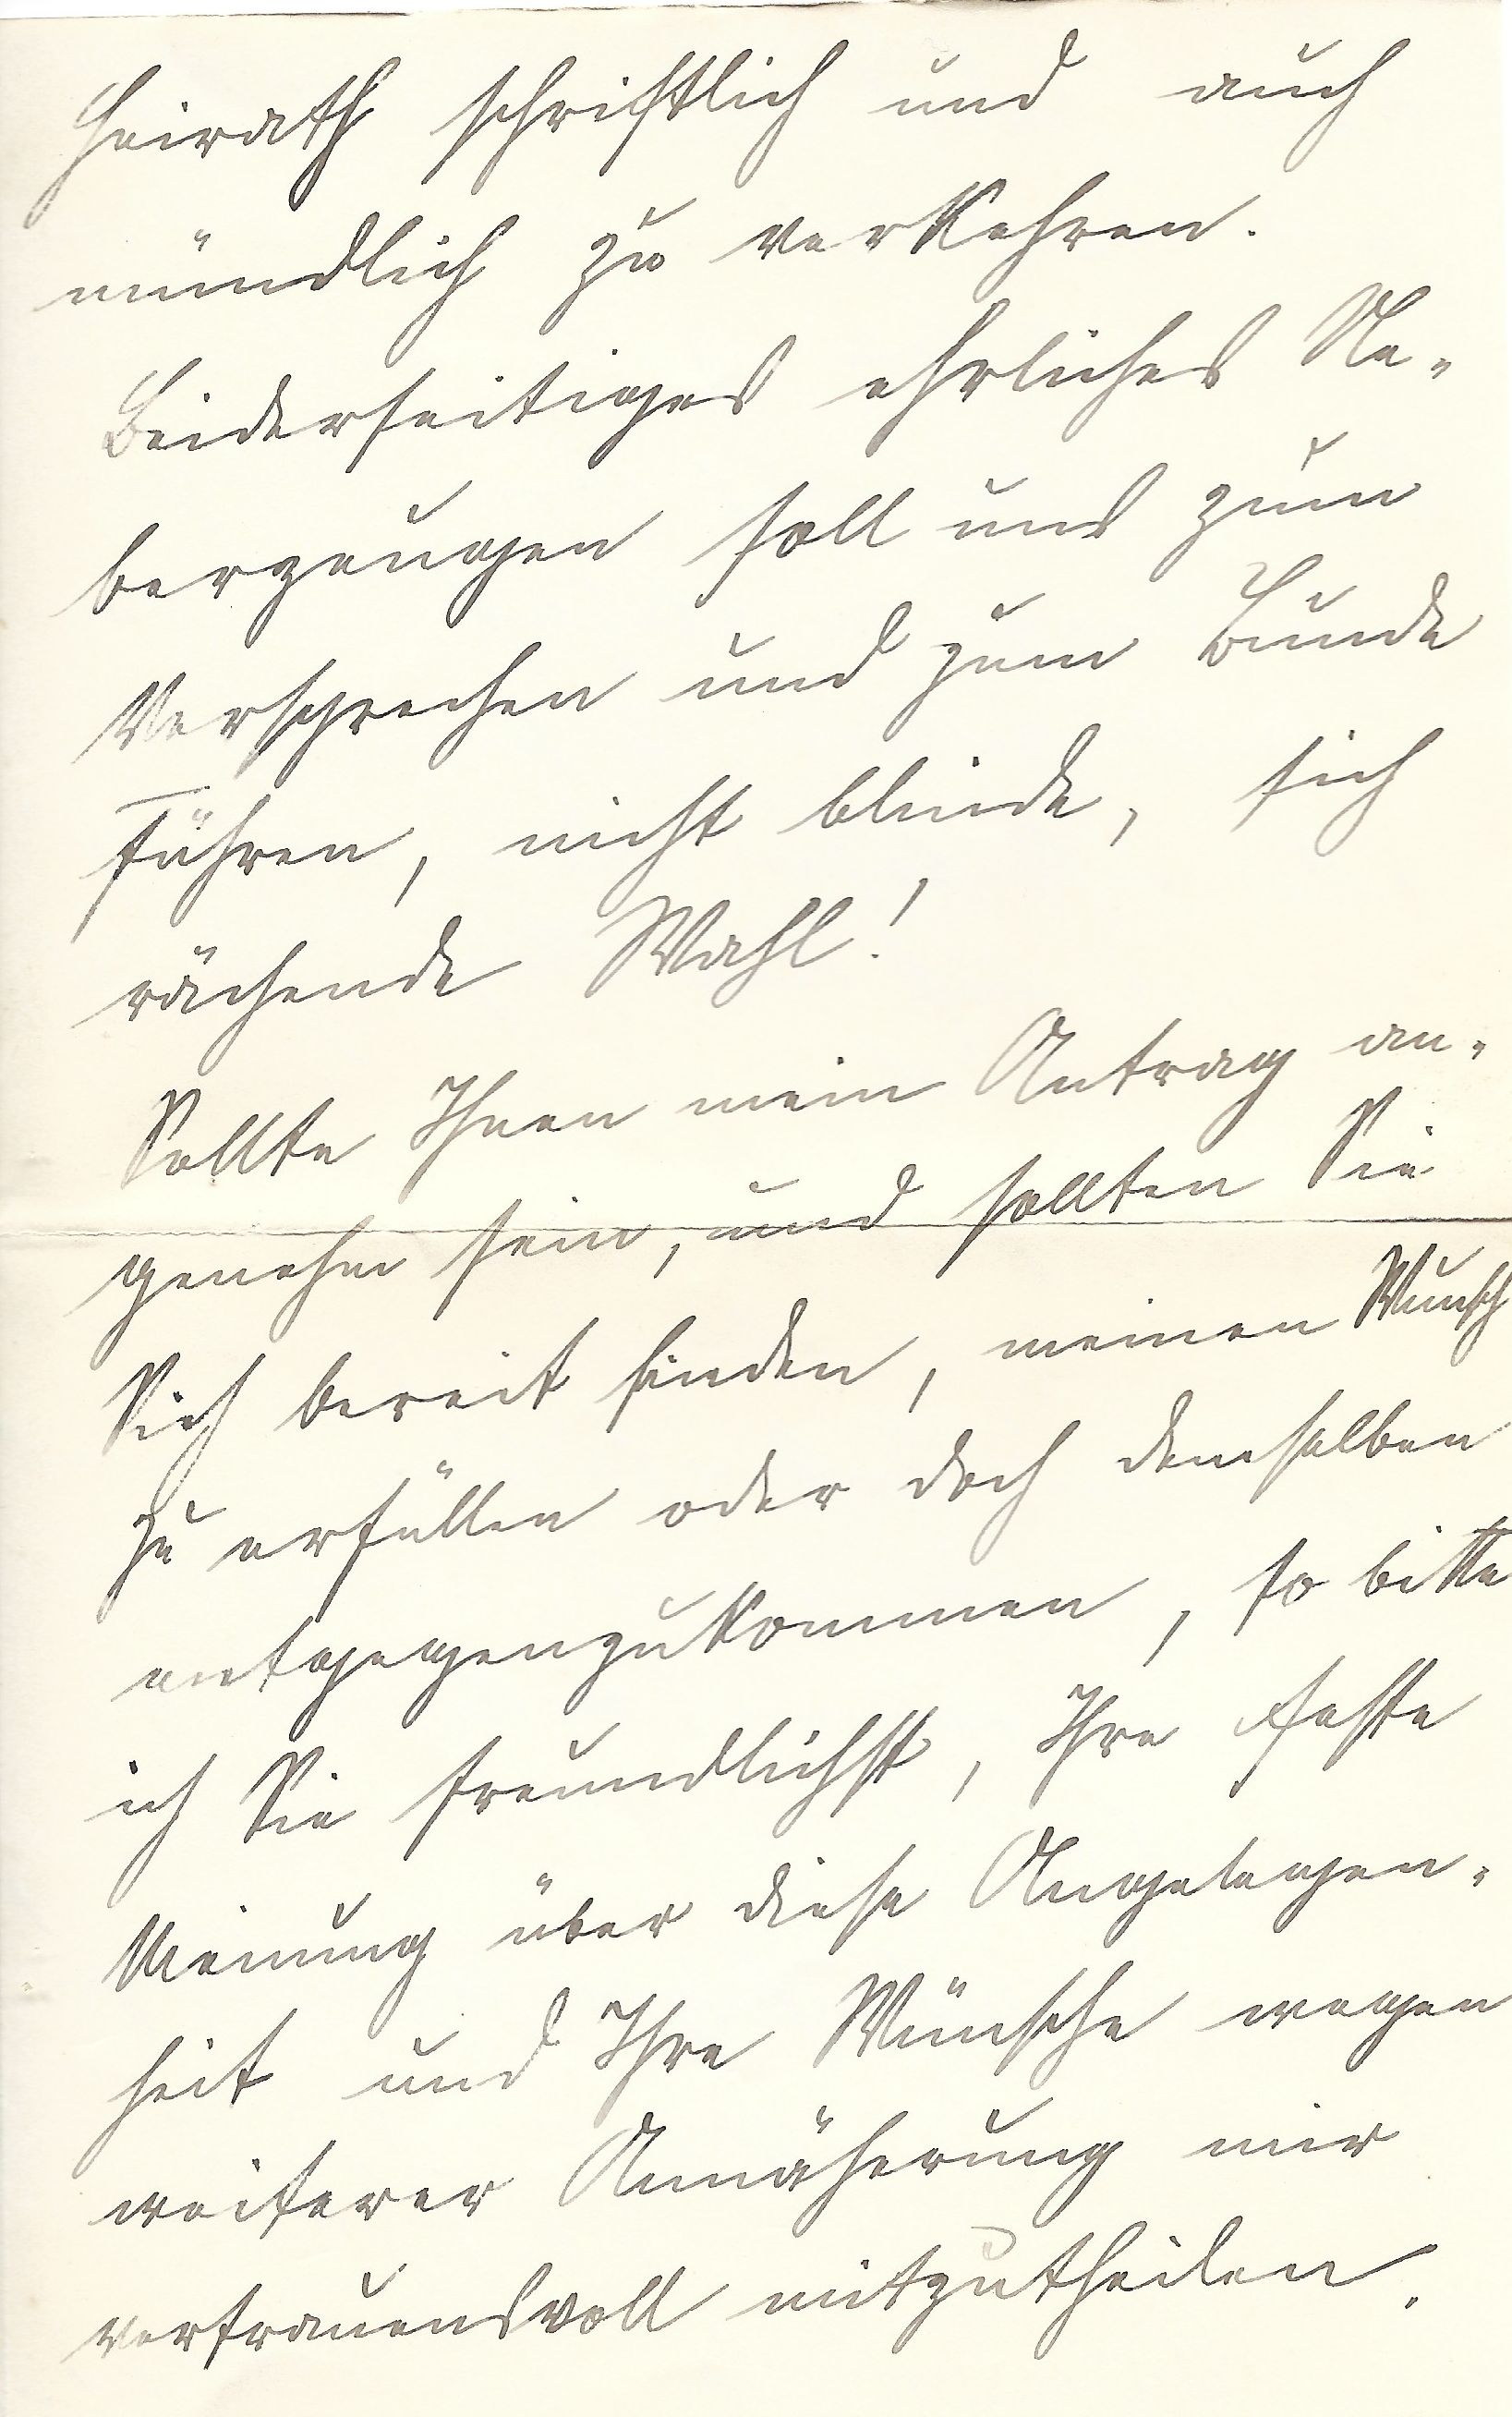 Heirath schriftlich und auch
mündlich zu verkehren.
Beiderseitiges ehrliches Ue-
berzeugen soll uns zum
Versprechen und zum Bunde
führen, nicht blinde, sich
rächende Wahl!
Sollte Ihnen mein Antrag an-
genehm sein, und sollten Sie
Sich bereit finden, meinen Wunsch
zu erfüllen oder doch demselben
entgegenzukommen, so bitte
ich Sie freundlichst, Ihre feste
Meinung über diese Angelegen-
heit und Ihre Wünsche wegen
weiterer Annäherung mir
vertrauensvoll mitzutheilen.